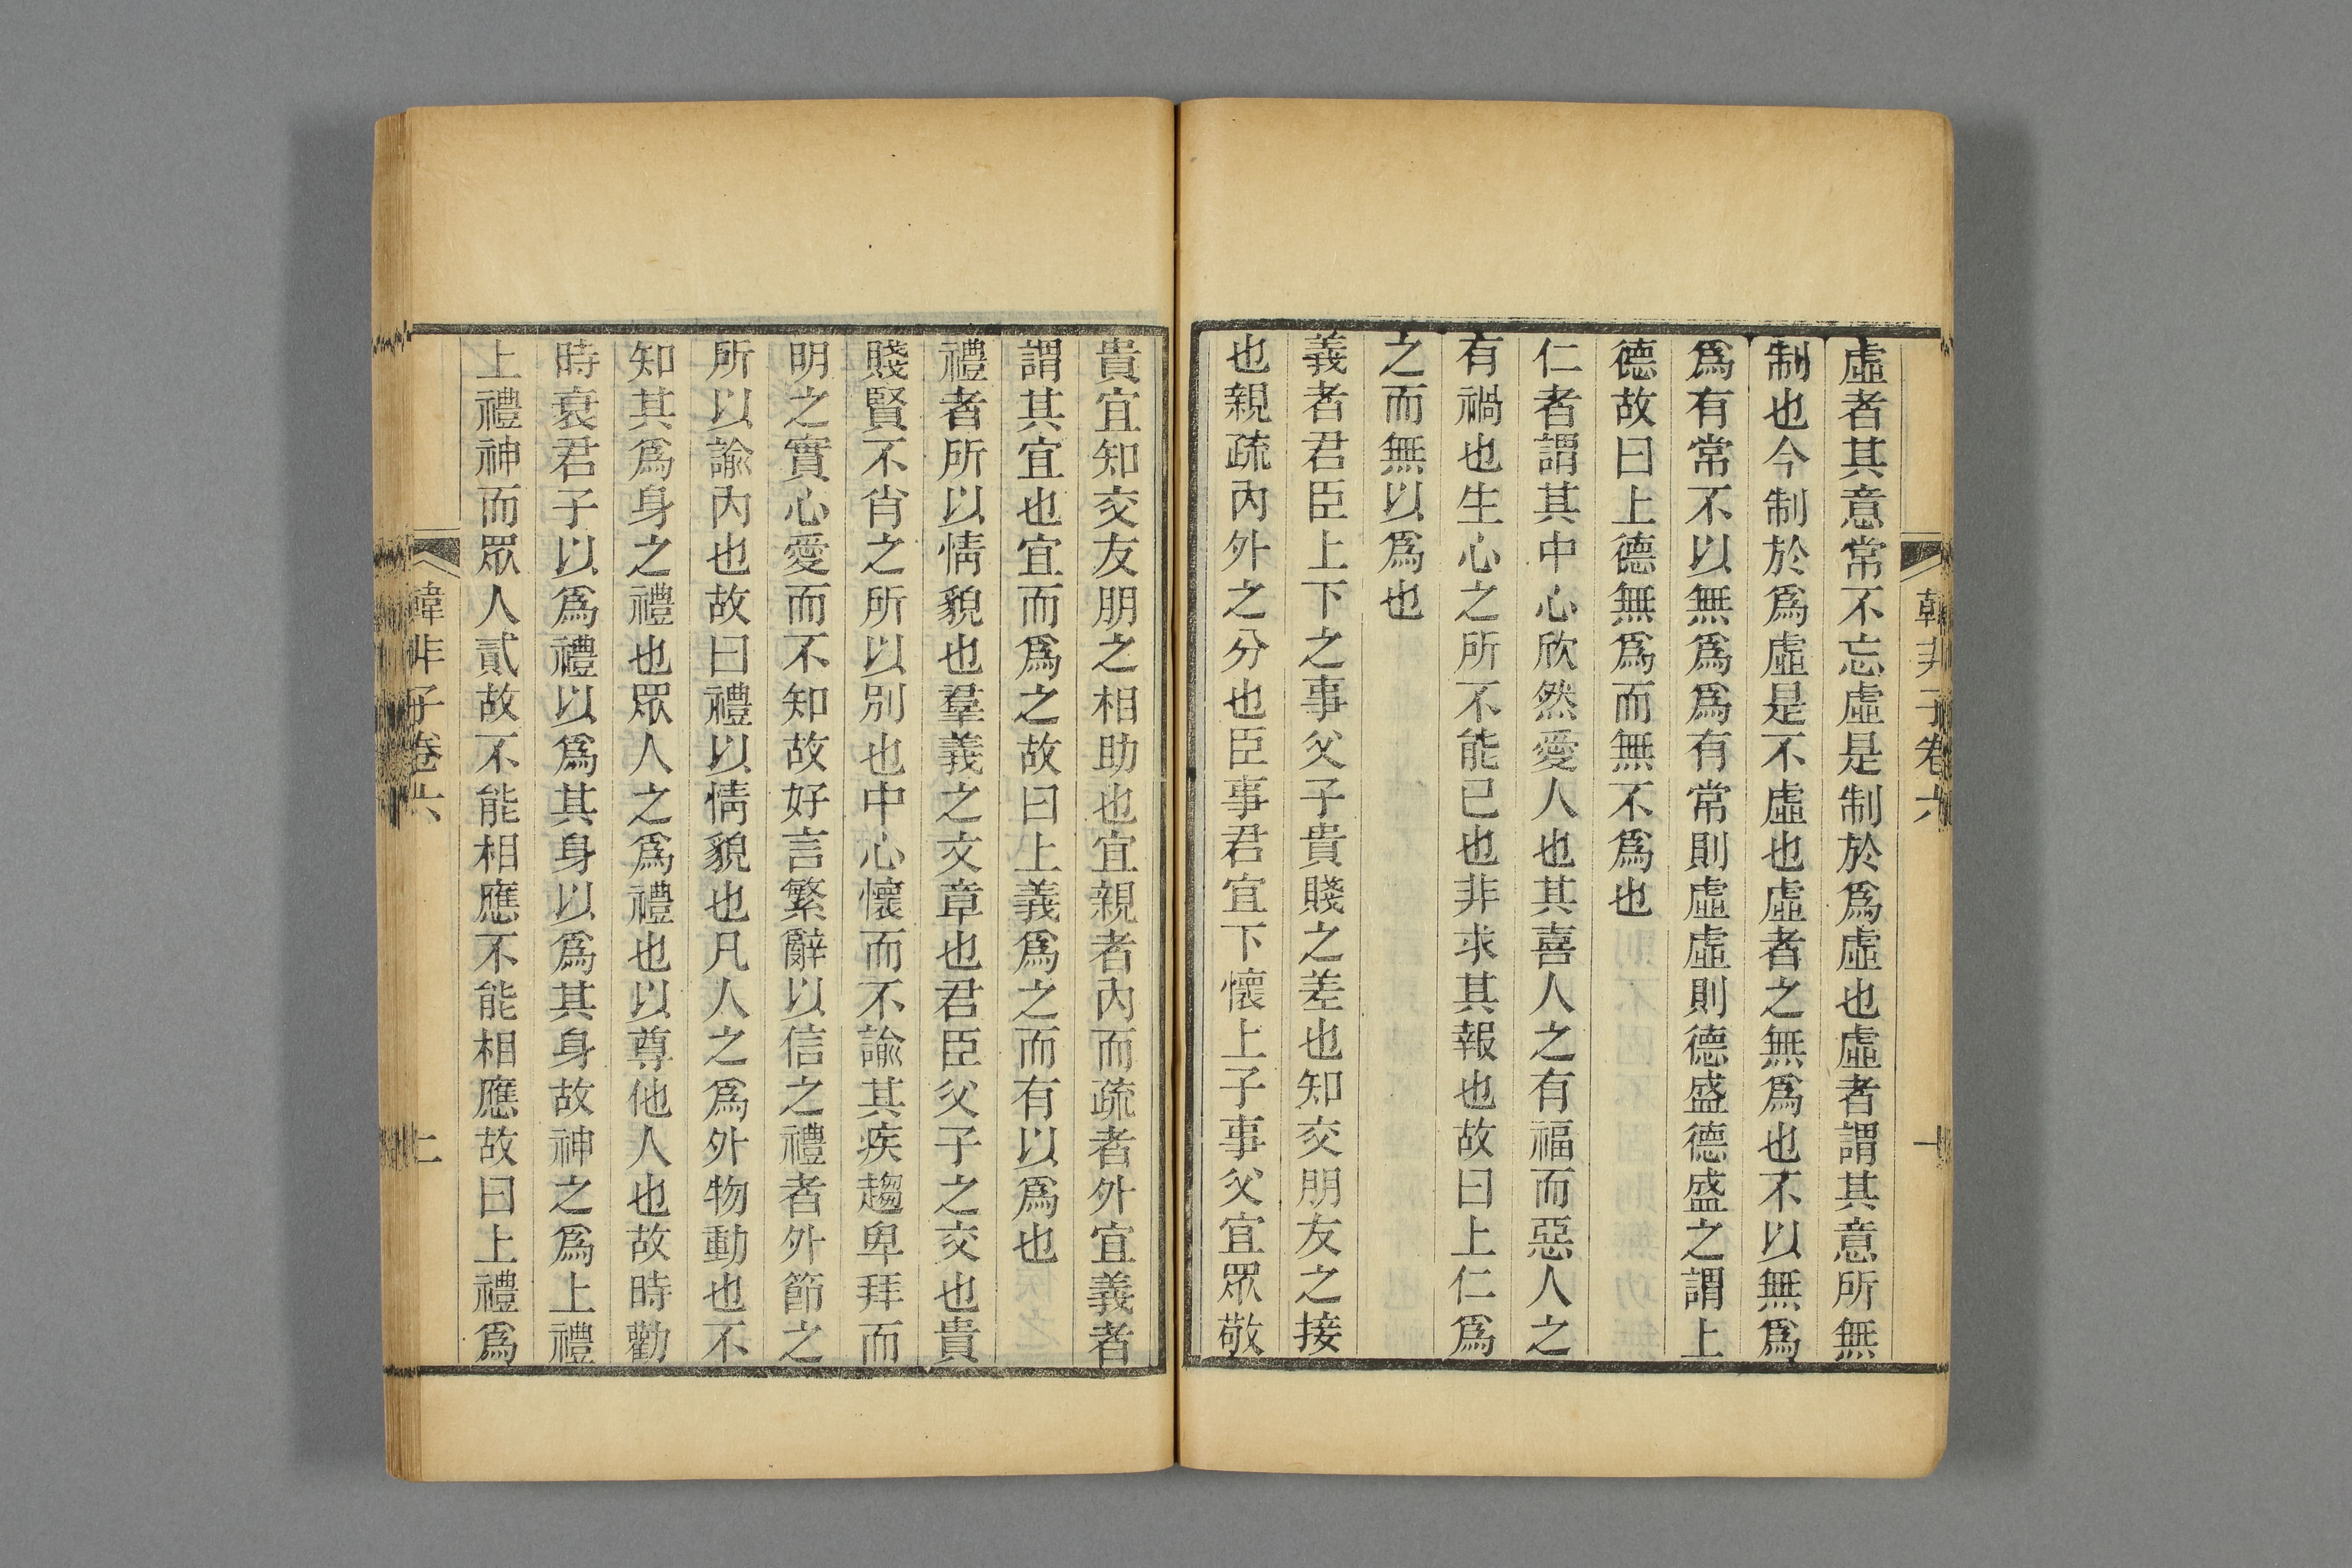 韓非子卷六
虛者其意常不忘虛是制於爲虛也虛者謂其意所無
制也今制於爲虛是不虛也虛者之無爲也不以無爲
爲有常不以無爲爲有常則虛虛則德盛德盛之謂上
德故曰上德無爲而無不爲也
仁者謂其中心欣然愛人也其喜人之有福而惡人之
有禍也生心之所不能已也非求其報也故曰上仁爲
之而無以爲也
義者君臣上下之事父子貴賤之差也知交朋友之接
也親疏內外之分也臣事君宜下懷上子事父宜眾敬
貴宜知交友朋之相助也宜親者內而疏者外宜義者
謂其宜也宜而爲之故曰上義爲之而有以爲也
禮者所以情貌也羣義之文章也君臣父子之交也貴
賤賢不肖之所以別也中心懷而不諭其疾趨卑拜而
明之實心愛而不知故好言繁辭以信之禮者外節之
所以諭內也故曰禮以情貌也凡人之爲外物動也不
知其爲身之禮也眾人之爲禮也以尊他人也故時勸
時衰君子以爲禮以爲其身以爲其身故神之爲上禮
上禮神而眾人貳故不能相應不能相應故曰上禮爲
韓非子卷六